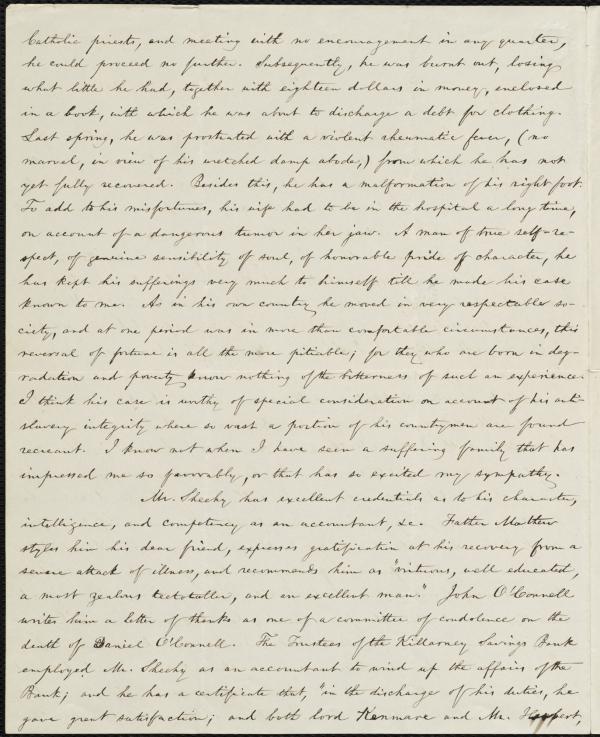 Catholic priests, and meeting with no encouragement in any quarter,
he could proceed no further. Subsequently, he was burnt out, losing
what little he had, together with eighteen dollars in money, enclosed
in a book, with which he was about to discharge a debt for clothing.
Last spring, he was prostrated with a violent rheumatic fever, (no
marvel, in view of his wretched damp abode,) from which he has not
yet fully recovered. Besides this, he has a malformation of his right foot.
To add to his misfortunes, his wife had to be in the hospital a long time,
on account of a dangerous tumor in her jaw. A man of true self-re-
spect, of genuine sensibility of soul, of honorable pride of character, he
has kept his sufferings very much to himself till he made his case
known to me. As in his own country he moved in very respectable so-
ciety, and at one period was in more than comfortable circumstances, this
reversal of fortune is all the more pitiable; for they who are born in deg-
radation and poverty know nothing of the bitterness of such an experience.
I think his case is worthy of special consideration on account of his anti-
slavery integrity where so vast a portion of his countrymen are found
recreant. I know not when I have seen a suffering family that has
impressed me so favorably, or that has so excited my sympathy.
Mr. Sheehy has excellent credentials as to his character,
intelligence, and competency as an accountant, &c. Father Mathew
styles him his dear friend, expresses gratification at his recovery from a
severe attack of illness, and recommends him as "virtuous, well educated,
a most zealous teetotaller, and an excellent man." John O'Connell
writes him a letter of thanks as one of a committee of condolence on the
death of Daniel O'Connell. The Trustees of the Killarney Savings Bank
employed Mr. Sheehy as an accountant to wind up the affairs of the
Bank; and he has a certificate that, "in the discharge of his duties, he
gave great satisfaction; and both lord Kenmare and Mr.